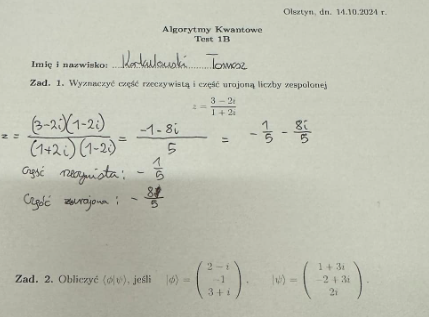 Olsztyn, dn. 14.10.2024 r.
Algorytmy Kwantowe
Test 1B
Imię i nazwisko: Tomasz
Zad. 1. Wyznaczyć część rzeczywistą i część urojoną liczby zespolonej
z = \frac{3 - 2i}{1 + 2i}
z = \frac{(3-2i)(1-2i)}{(1+2i)(1-2i)} = \frac{-1-8i}{5} = -\frac{1}{5} - \frac{8i}{5}
Część rzeczywista: -\frac{1}{5}
Część urojona: -\frac{8}{5}
Zad. 2. Obliczyć ⟨ϕ|ψ⟩, jeśli |ϕ⟩ = \begin{pmatrix} 2 - i \\ -1 \\ 3 + i \end{pmatrix}, |ψ⟩ = \begin{pmatrix} 1 + 3i \\ -2 + 3i \\ 2i \end{pmatrix}.